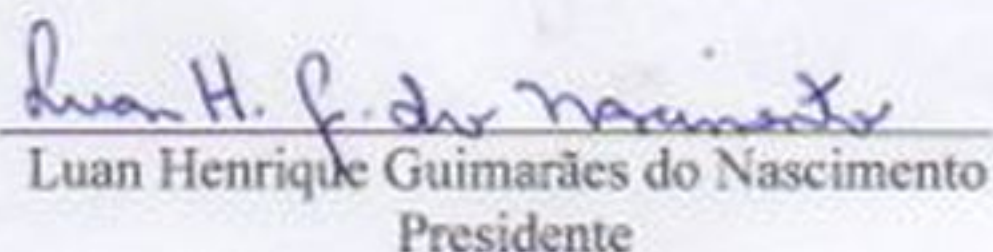 Luan H. G. do Nascimento
Luan Henrique Guimarães do Nascimento
Presidente